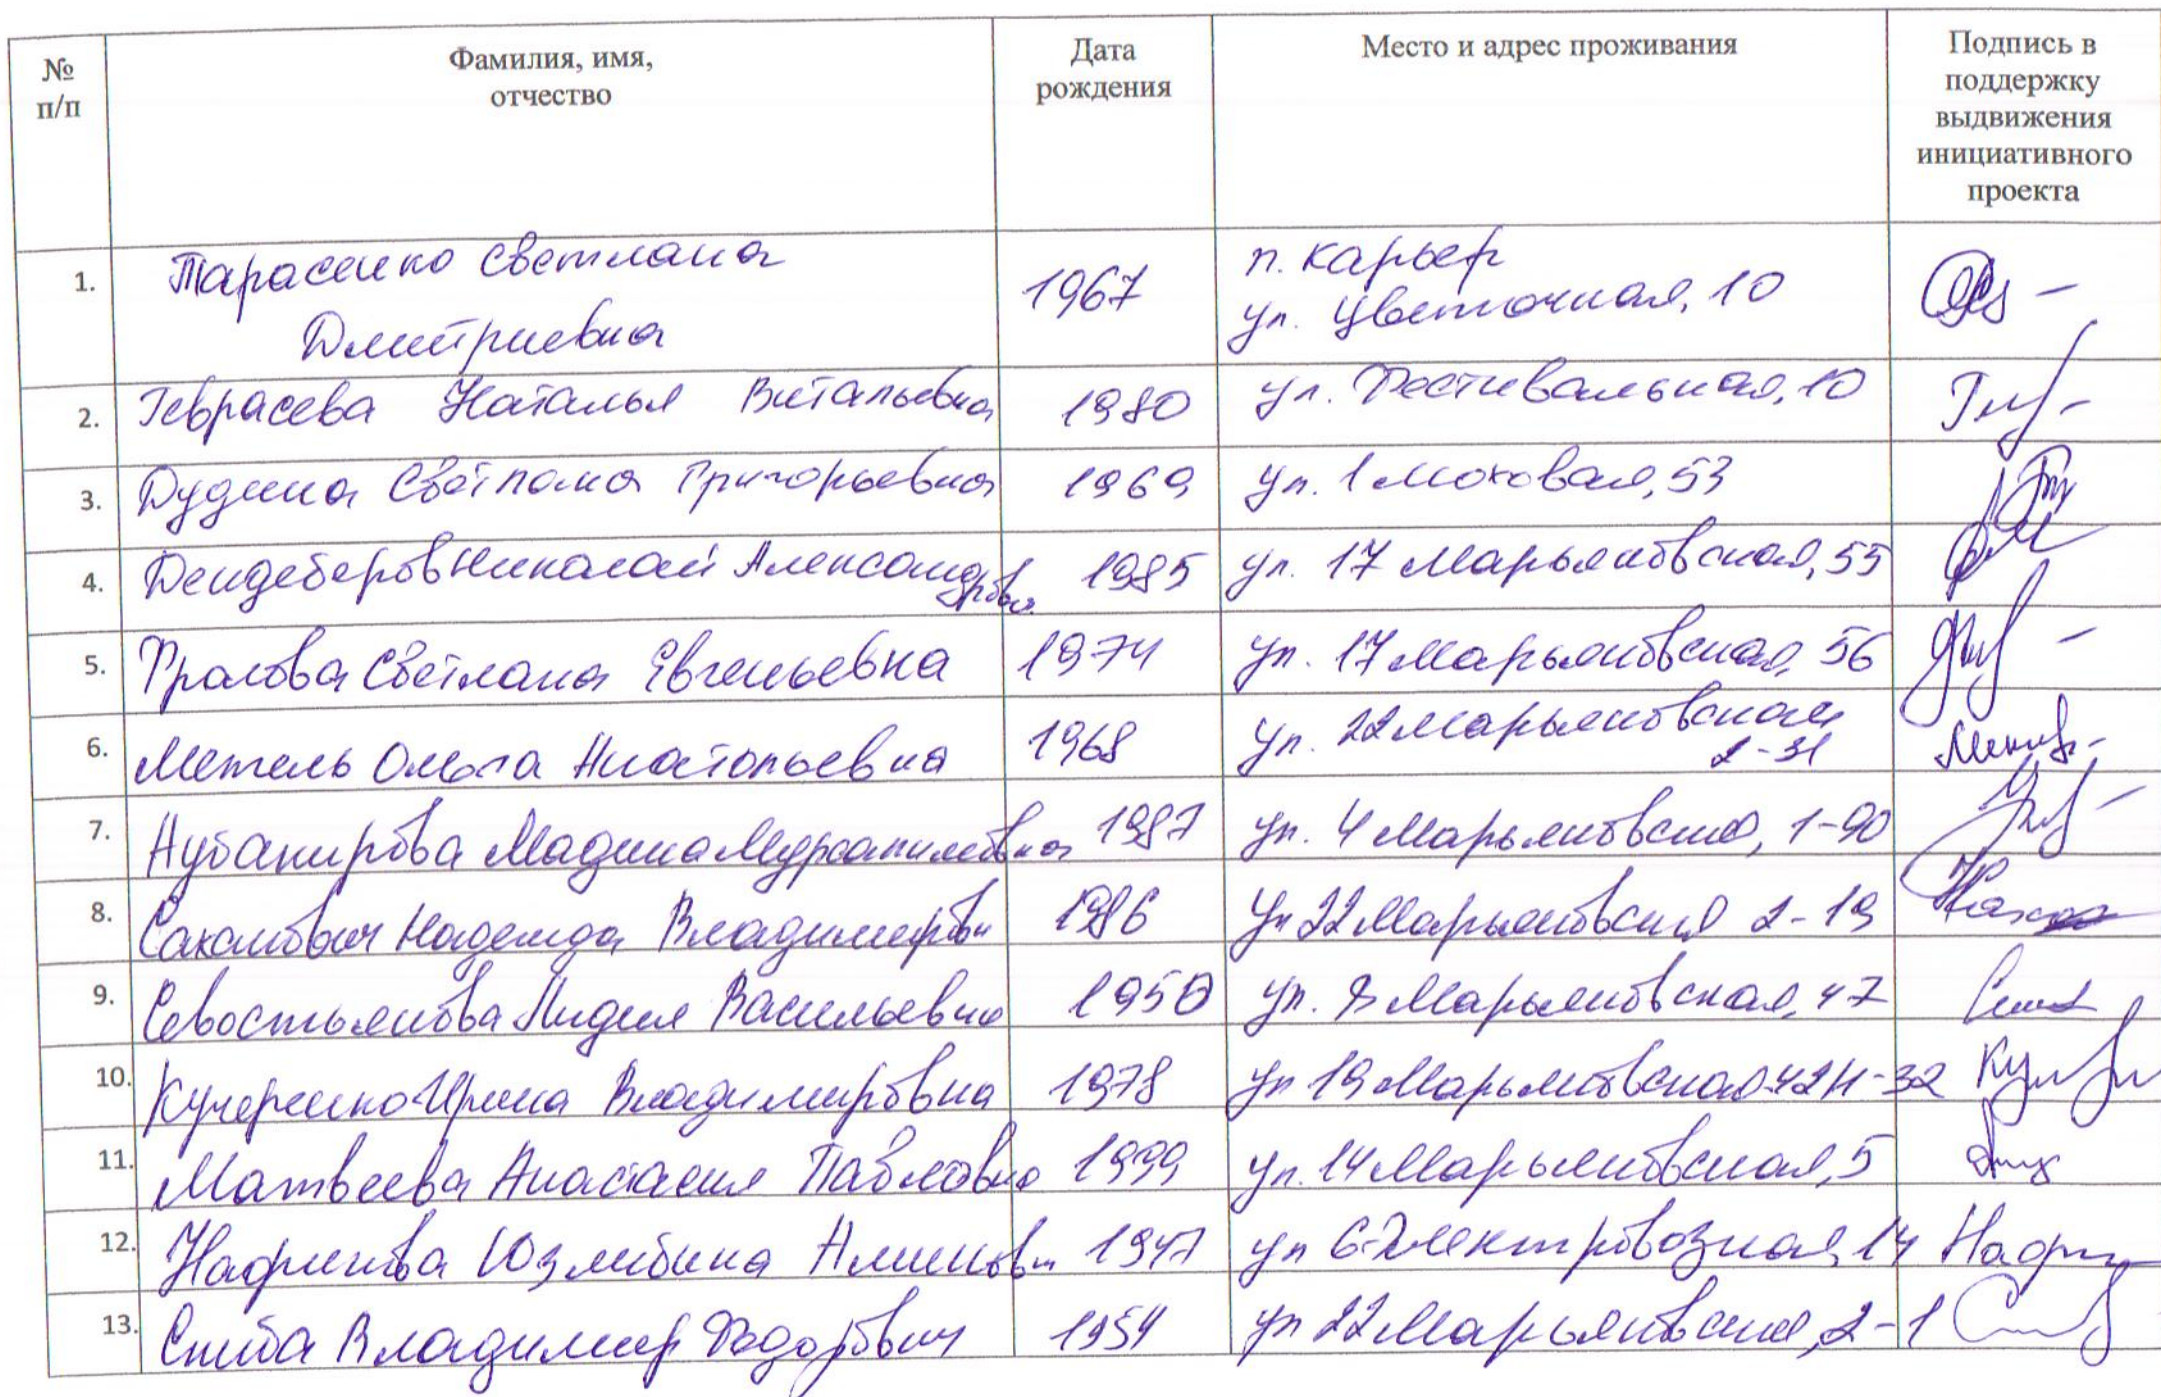 № п/п
Фамилия, имя, отчество
Дата рождения
Место и адрес проживания
Подпись в поддержку выдвижения инициативного проекта
1. Тарасенко Светлана Дмитриевна 1967 п. Карьер ул. Цветочная, 10
2. Геврасева Наталья Витальевна 1980 ул. Фестивальная, 10
3. Дудина Светлана Григорьевна 1969 ул. 1 Моховая, 53
4. Дендеберов Николай Александрович 1985 ул. 17 Марьяновская, 55
5. Фролова Светлана Евгеньевна 1974 ул. 17 Марьяновская, 56
6. Метель Ольга Анатольевна 1968 ул. 22 Марьяновская 2-31
7. Нубакирова Мадина 1987 ул. 4 Марьяновская, 1-90
8. Надежда Владимировн 1986 ул 22 Марьяновская 2-19
9. Севостьянова Лидия Васильевна 1950 ул. 8 Марьяновская, 47
10. Кучеренко Ирина Владимировна 1978 ул 19 Марьяновская 42Н-32
11. Матвеева Анастасия Павловна 1999 ул. 14 Марьяновская, 5
12. Нафикова 1947 ул 6-Электровозная, 14
13. Владимир Федорович 1954 ул 22 Марьяновская, 2-1